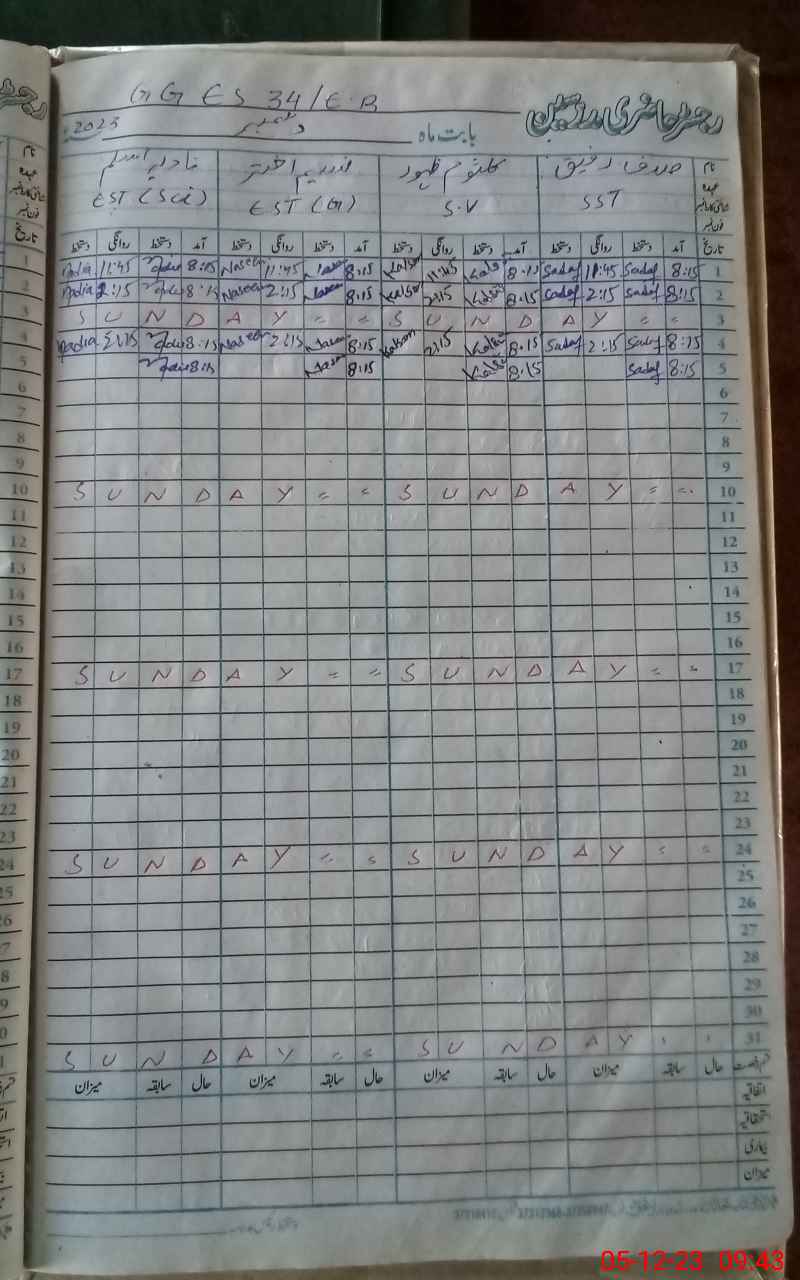 GGES 34/E.B
رجسٹر حاضری مدرسین
بابت ماہ دسمبر 2023ء
نام صدف رفیق کلثوم ظہور نسیم اختر نادیہ اسلم
عہدہ SST S.V EST (G) EST (Sci)
تاریخ آمد دستخط روانگی دستخط آمد دستخط روانگی دستخط آمد دستخط روانگی دستخط آمد دستخط روانگی دستخط
Nadia 11:45 Nadia 8:15 Naseem 11:45 Naseem 8:15 Kalsom 11:45 Kalsom 8:15 Sadaf 11:45 Sadaf 8:15 1
Nadia 2:15 Nadia 8:15 Naseem 2:15 Naseem 8:15 Kalsom 2:15 Kalsom 8:15 Sadaf 2:15 Sadaf 8:15 2
S U N D A Y = = S U N D A Y = = 3
Nadia 2:15 Nadia 8:15 Naseem 2:15 Naseem 8:15 Kalsom 2:15 Kalsom 8:15 Sadaf 2:15 Sadaf 8:15 4
Nadia 8:15 Naseem 8:15 Kalsom 8:15 Sadaf 8:15 5
6
7
8
9
S U N D A Y = = S U N D A Y = = 10
11
12
13
14
15
16
S U N D A Y = = S U N D A Y = = 17
18
19
20
21
22
23
S U N D A Y = = S U N D A Y = = 24
25
26
27
28
29
30
S U N D A Y = = S U N D A Y 31
قسم رخصت حال سابقہ میزان حال سابقہ میزان حال سابقہ میزان حال سابقہ میزان
اتفاقیہ
استحقاقیہ
بیماری
میزان
05-12-23 09:43